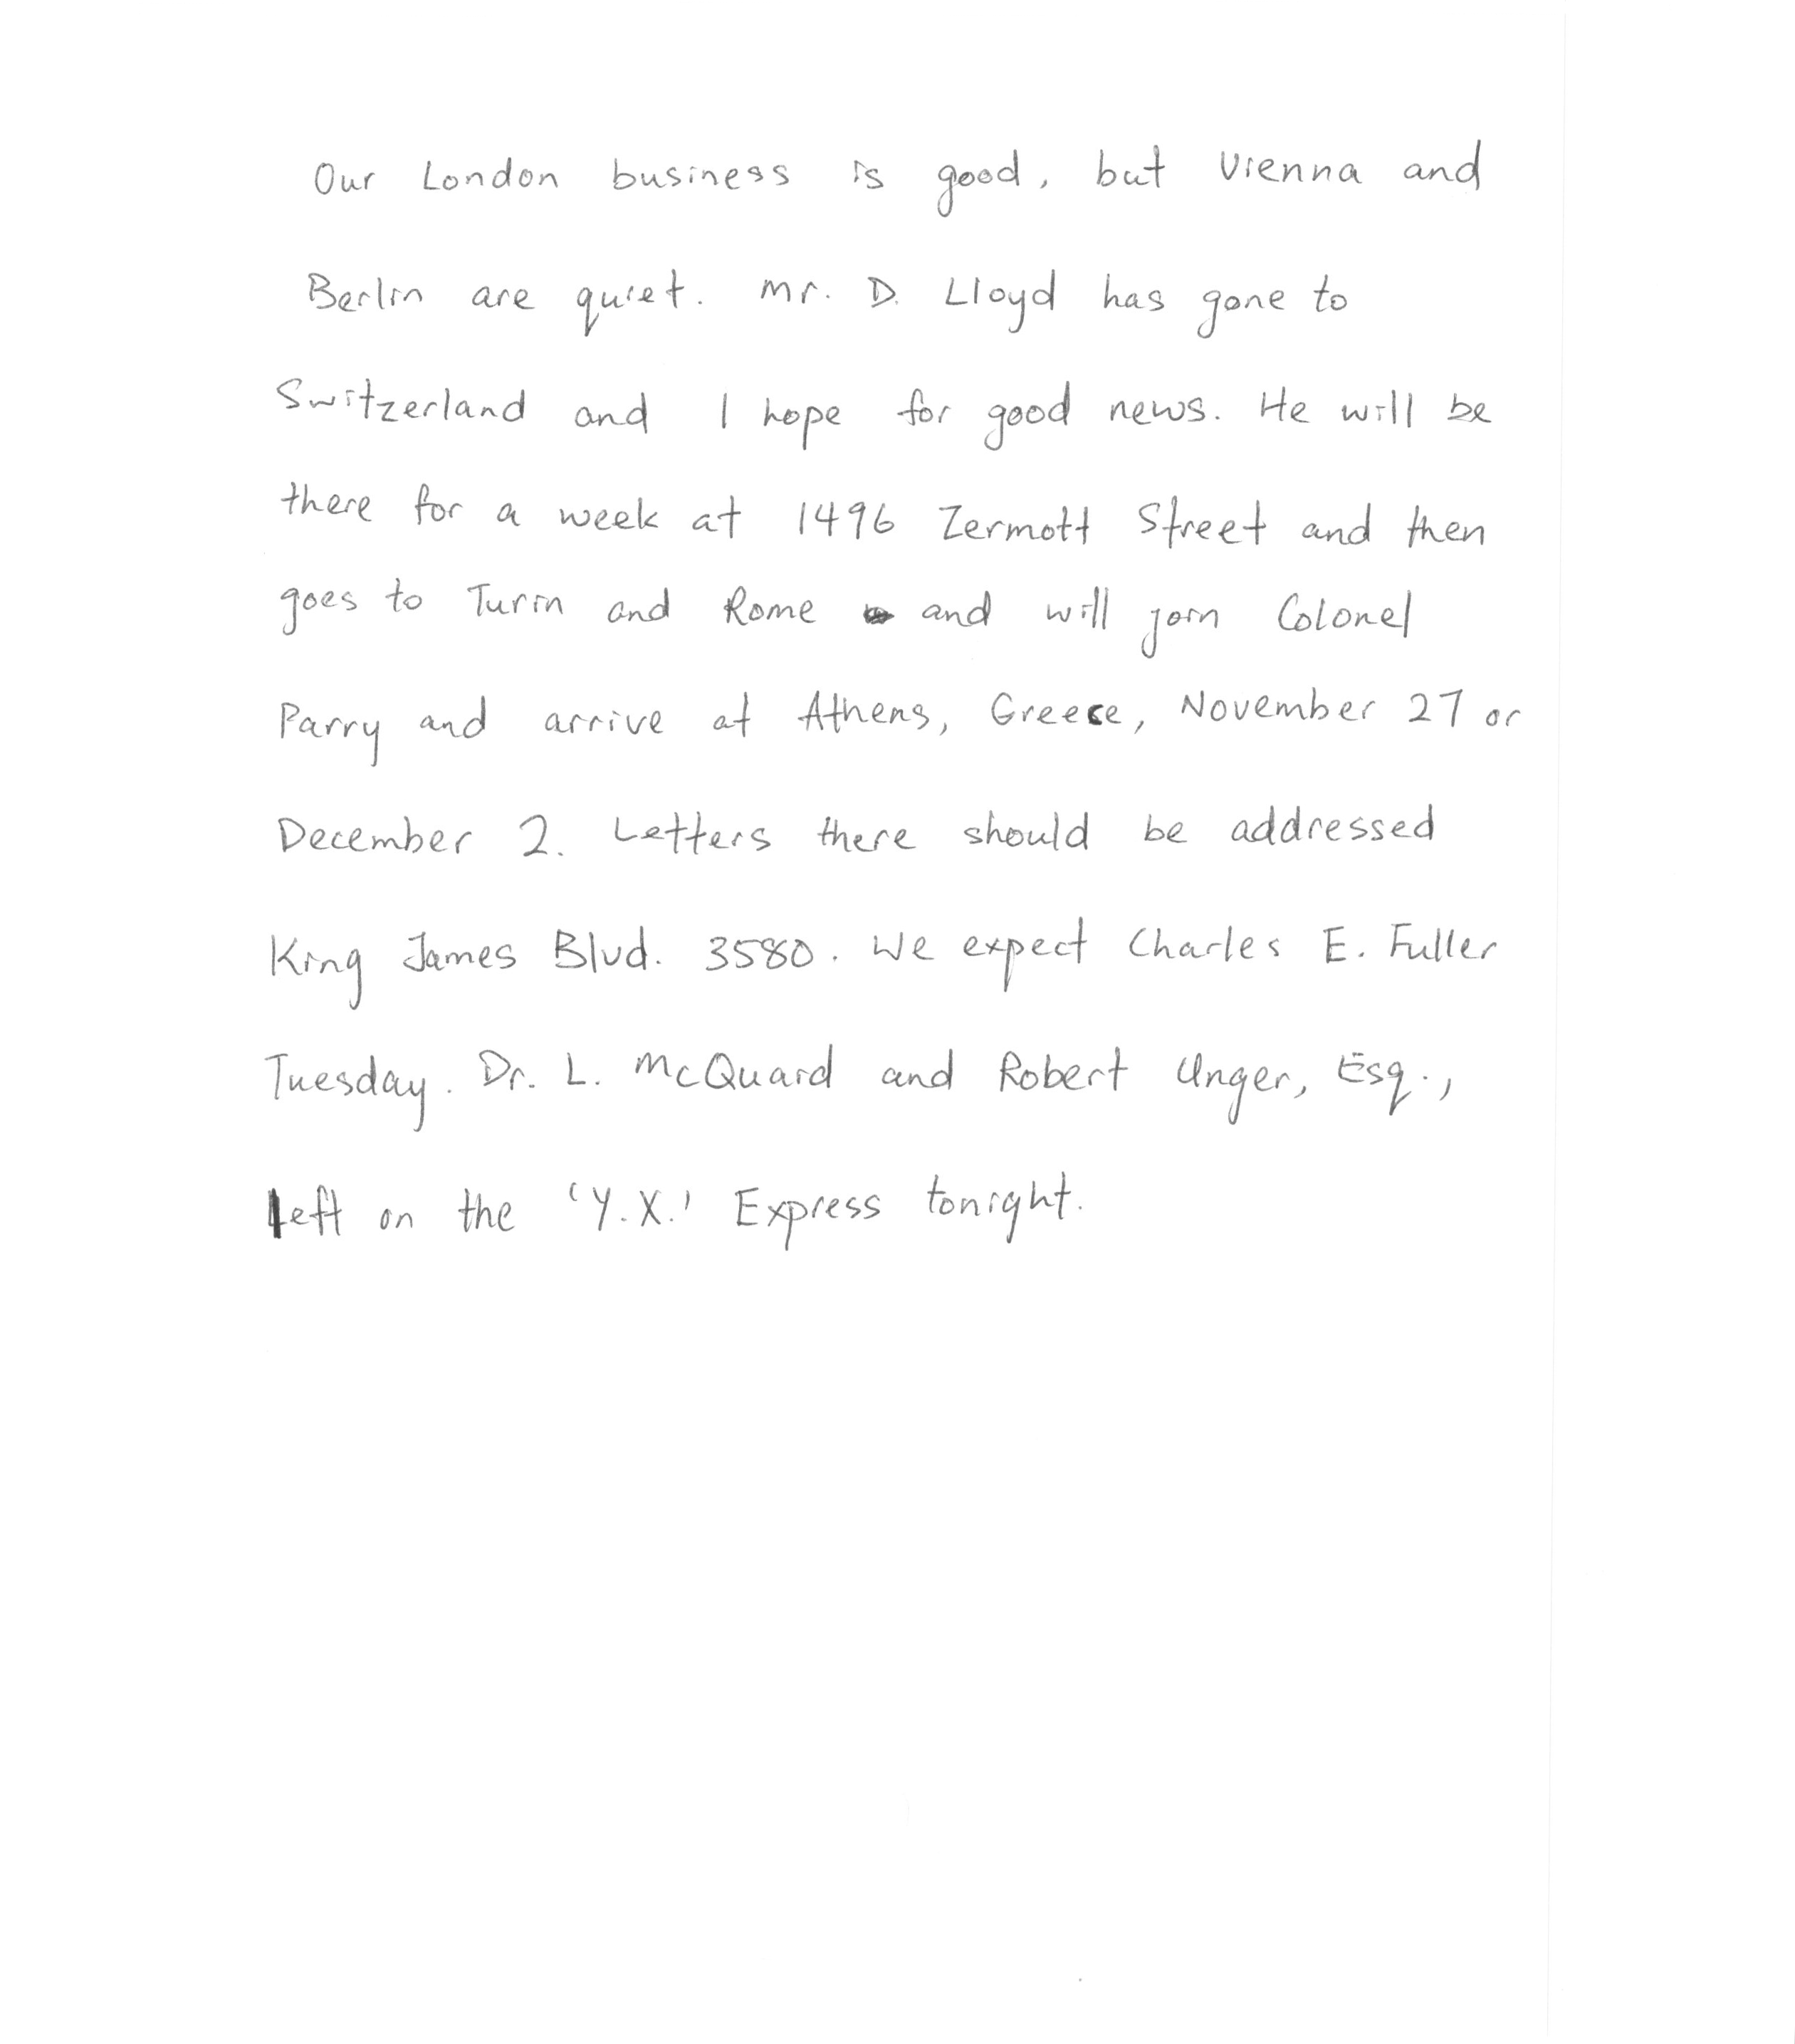 Our London business is good, but Vienna and
Berlin are quiet. Mr. D. Lloyd has gone to
Switzerland and I hope for good news. He will be
there for a week at 1496 Zermott Street and then
goes to Turin and Rome and will join Colonel
Parry and arrive at Athens, Greece, November 27 or
December 2. Letters there should be addressed
King James Blvd. 3580. We expect Charles E. Fuller
Tuesday. Dr. L. McQuard and Robert Unger, Esq.,
left on the 'Y.X.' Express tonight.